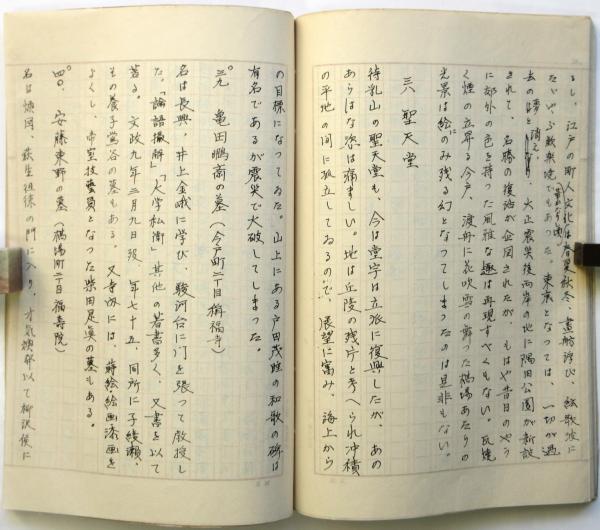 るし、江戸の町人文化は春夏秋冬、畫舫浮び、絵歌波に
たゞよふ歓楽境でもあった。東京となっては、一切が過
去の夢と消え、大正震災後両岸の地に隅田公園が新設
されて、名勝の復活が企図されたが、もはや昔日のやう
に郊外の色を持った風雅な趣は再現すべくもない。瓦焼
く煙の立昇る今戸、渡舟に花吹雪の舞った橋場あたりの
光景は絵にのみ残る幻となってしまったのは是非もない。
三八 聖天堂
待乳山の聖天堂も、今は堂宇は立派に復興したが、あの
あらはな姿は痛ましい。地は丘陵の残片と考へられ冲積
の平地の間に孤立してゐるので、展望に富み、海上から
の目標になってゐた。山上にある戸田茂睡の和歌の碑は
有名であるが震災で大破してしまった。
三九 亀田鵬斎の墓（今戸町二丁目称福寺）
名は長興。井上金峨に学び、駿河台に門を張って教授し
た。「論語撮解」「大学私衡」其他の著書多く、又書を以て
著る。文政九年三月九日歿 年七十五、同所に子綾瀬、
その養子鶯谷の墓もある。又寺内には、蒔絵絵画漆画を
よくし、帝室技藝員となった柴田是真の墓もある。
四〇 安藤東野の墓（橋場町二丁目福寿院）
名は煥図。荻生徂徠の門に入り、才気煥発以て柳沢侯に